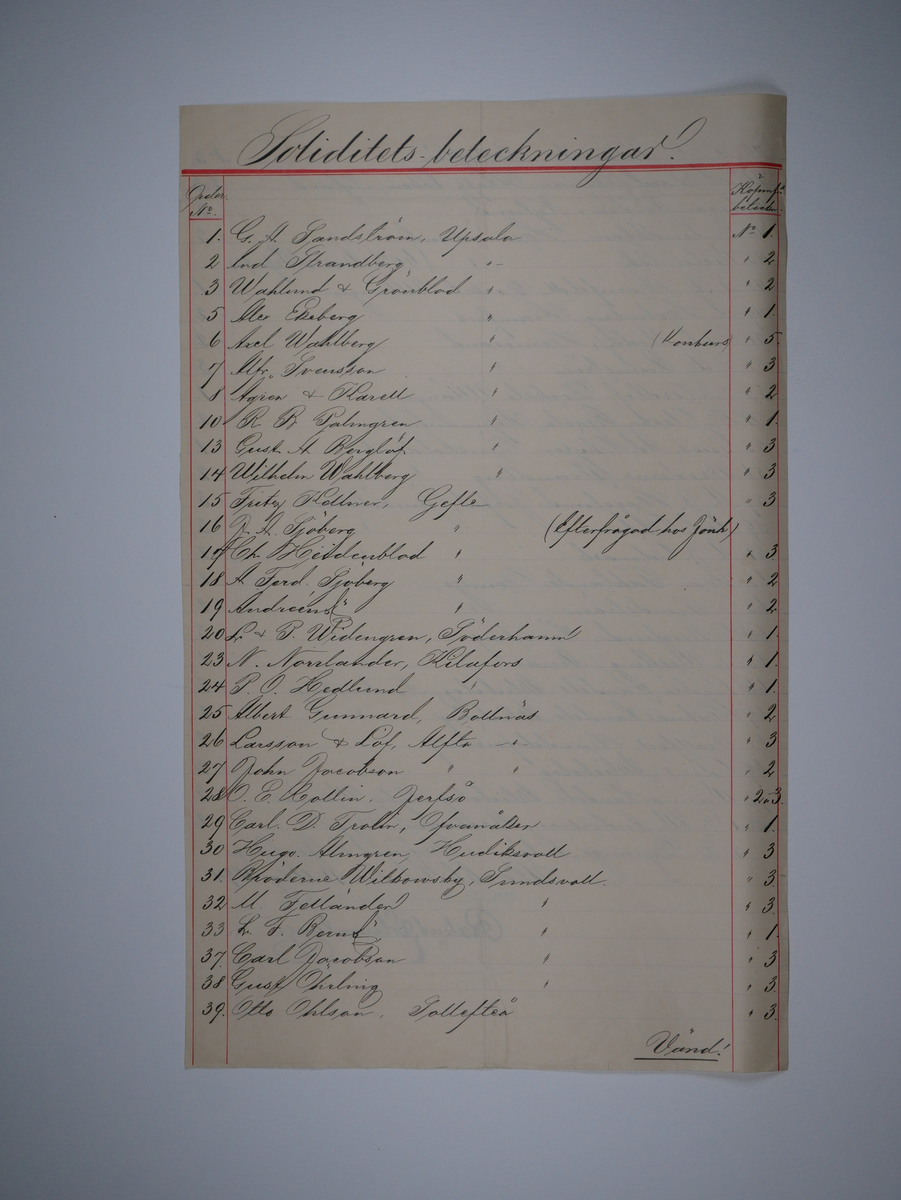 Soliditets-beteckningar.
Order No. Köpmf. beteckn.
1. G. A. Sandström, Upsala No 1.
2 Lud Strandberg " — " 2
3 Wahlund & Grönblad " " 2
5 Alex Ekeberg " " 1.
6 Axel Wahlberg " (Konkurs) " 5.
7 Alfr. Svensson " " 3
8 Agren & Karell " " 2
10 R B Palmgren " " 1.
13 Gust. A Berglöf " " 3
14 Wilhelm Wahlberg " " 3
15 Fritz Kellner, Gefle " 3
16 A. Sjöberg " (Efterfrågad hos Jönk)
17 Ch. Heidenblad " " 3
18 A Ferd. Sjöberg " " 2
19 Andreéns " " 2
20 L & P. Widengren, Söderhamn " 1.
23 N. Norrlander, Kilafors " 1.
24 P. O. Hedlund " " 1.
25 Albert Gunnard, Bollnäs " 2
26 Larsson & Löf, Alfta — " — " 3
27 John Jacobson " " " 2
28 O. E. Hollin. Jerfsö " 2 o 3.
29 Carl. D. Trolin, " 1.
30 Hugo. Almgren, Hudiksvall " 3
31. Bröderne Wilkowsky, Sundsvall. " 3.
32 M. Fetländer " " 3.
33 L. F. Berns " " 1.
37. Carl Jacobson " " 3
38 Gust Öhrling " " 3.
39. Otto Ohlson, Sollefteå " 3.
Vänd!